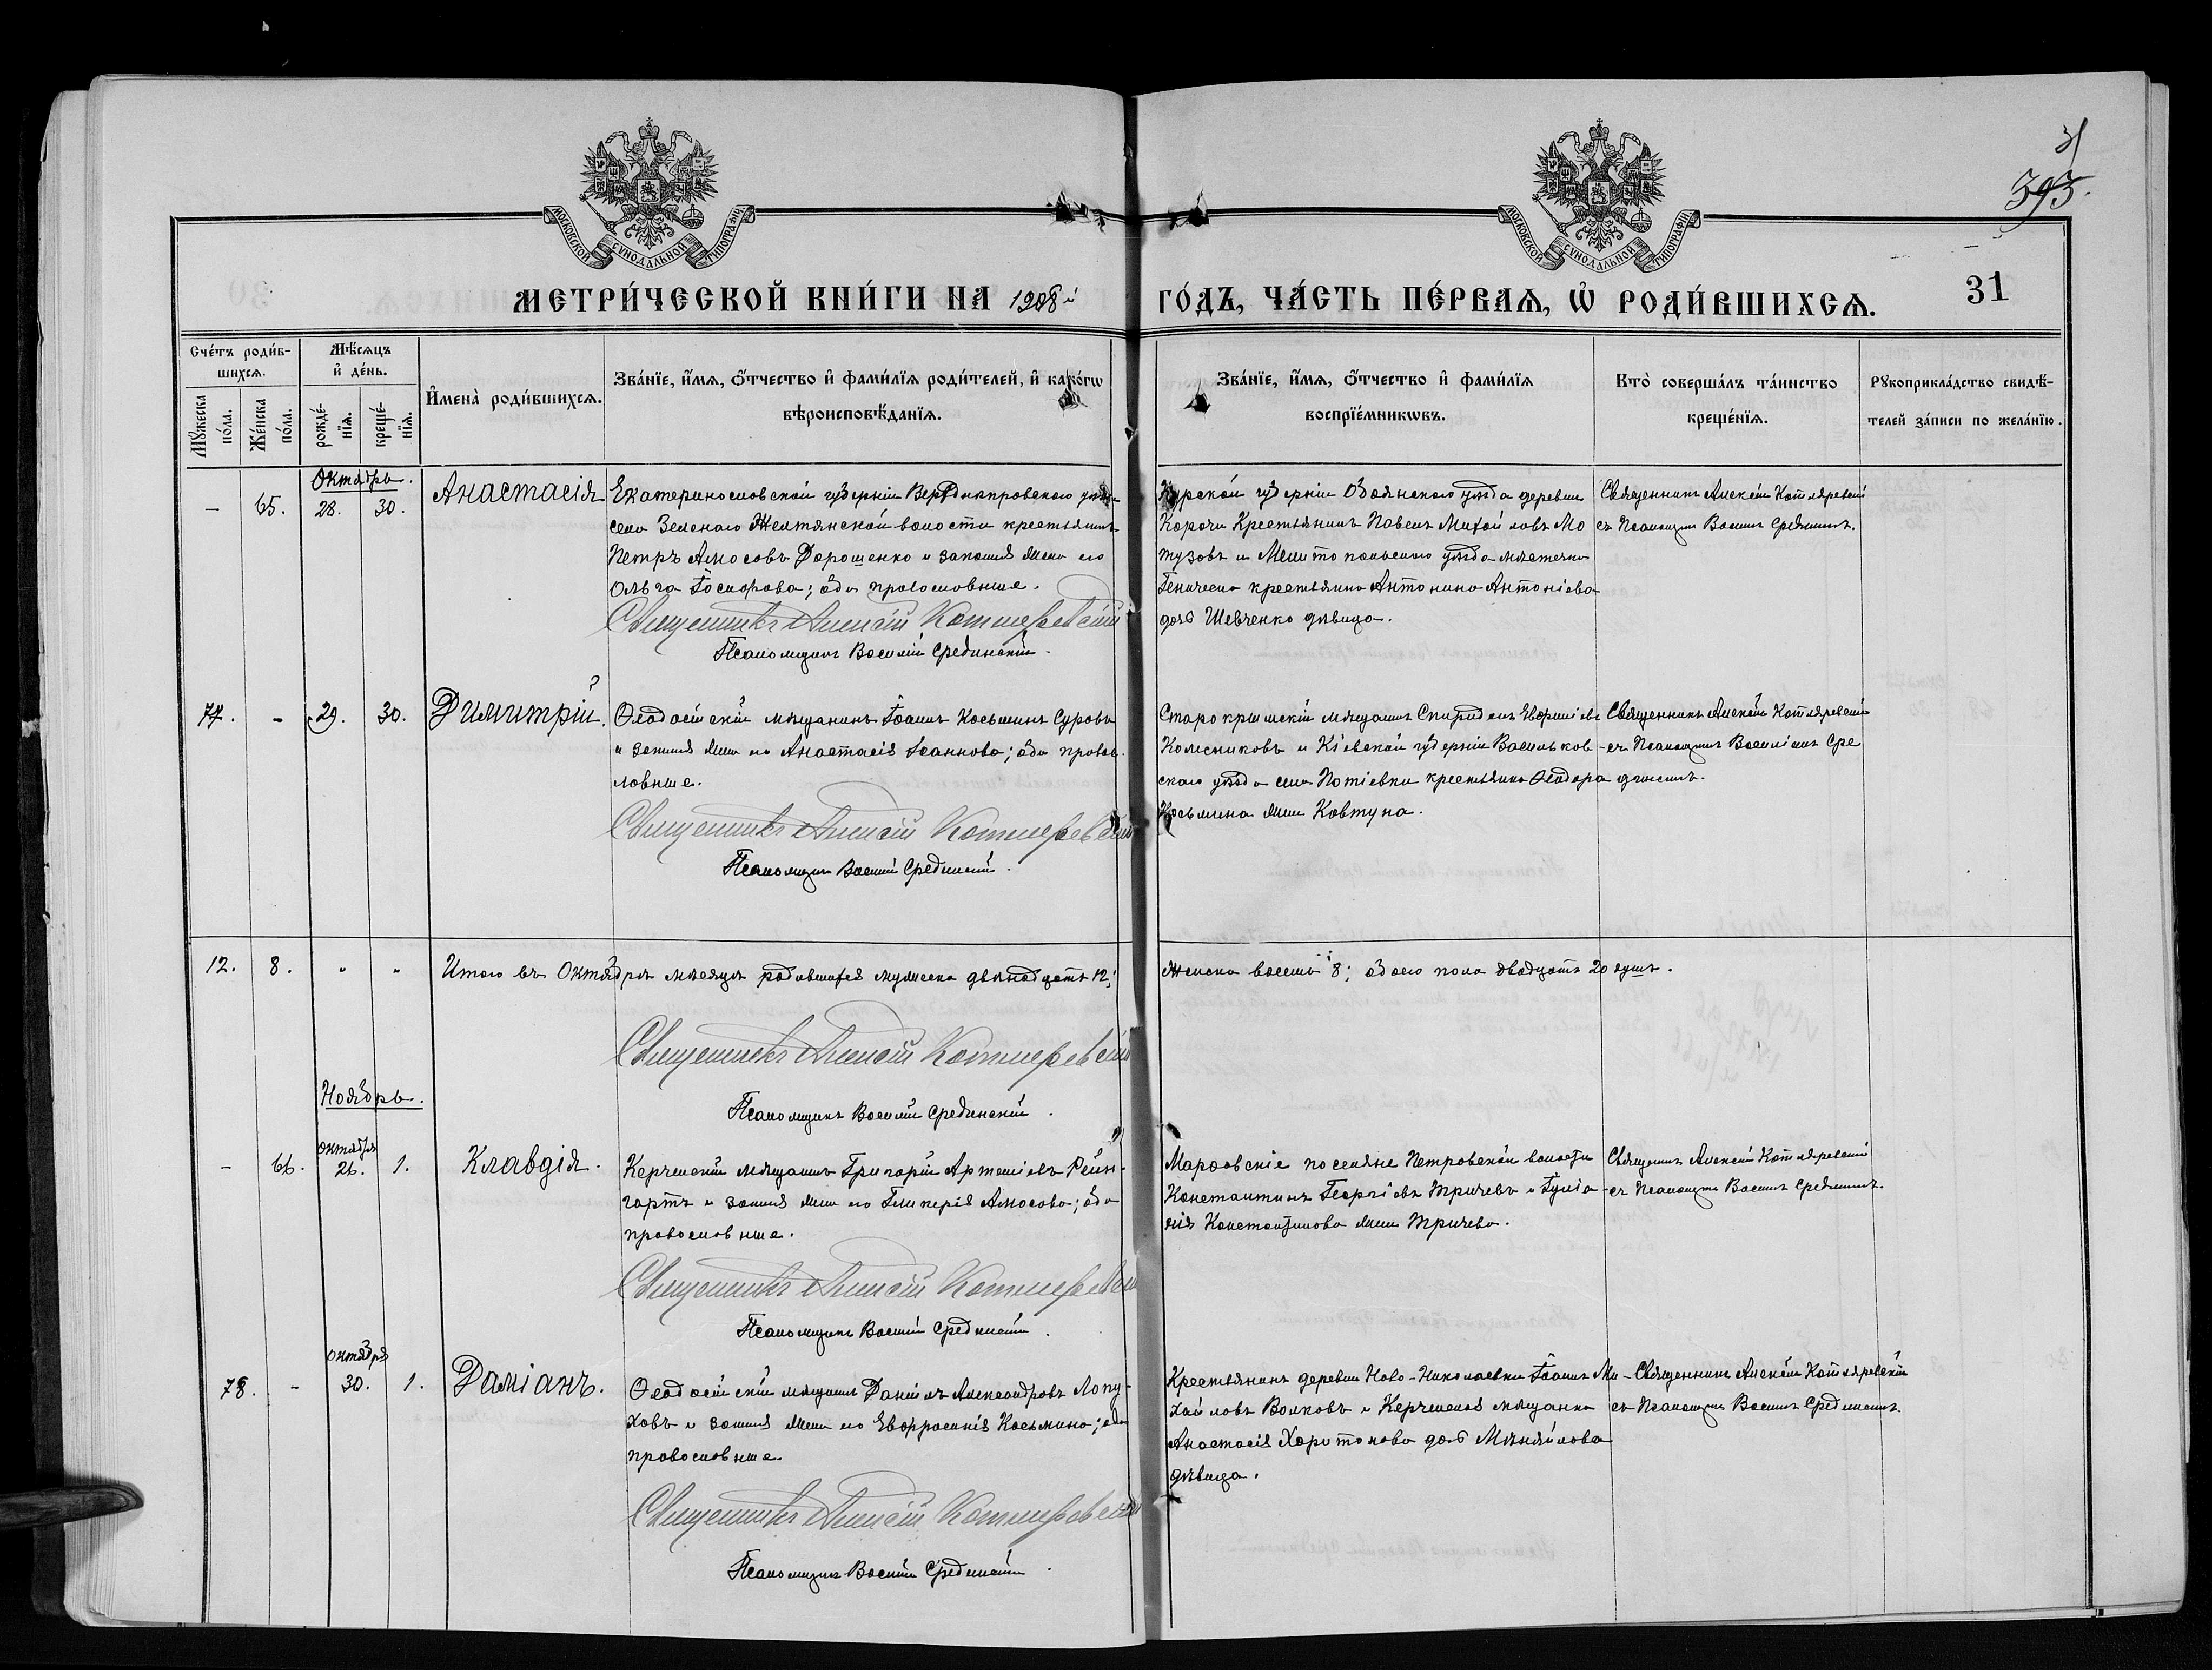 31
393.
МОСКОВСКОЙ СѴНОДАЛЬНОЙ ТИПОГРАФІИ
МОСКОВСКОЙ СѴНОДАЛЬНОЙ ТИПОГРАФІИ
МЕТРИ́ЧЕСКОЙ КНИ́ГИ НА 1908й ГО́ДЪ, ЧА́СТЬ ПЕ́РВАѦ, Ѡ҆ РОДИ́ВШИХСѦ. 31
Сче́тъ роди́в-
шихсѧ.
Мꙋ́жеска
по́ла.
Же́нска
по́ла.
Мѣ́сѧцъ
и҆ де́нь.
рожде́-
нїѧ.
креще́-
нїѧ.
И҆мена̀ роди́вшихсѧ.
Зва́нїе, и҆́мѧ, ѻ҆́тчество и҆ фами́лїѧ роди́телей, и҆ како́гѡ
вѣроисповѣ́данїѧ.
Зва́нїе, и҆́мѧ, ѻ҆́тчество и҆ фами́лїѧ
воспрїе́мникѡвъ.
Кто̀ соверша́лъ та́инство
креще́нїѧ.
Рꙋкоприкла́дство свидѣ́-
телей за́писи по жела́нїю.
Октябрь.
– 65. 28. 30. Анастасія
Екатеринославской губерніи Верхднѣпровскаго уѣзда
села Зеленаго Желтянской волости крестьянинъ
Петръ Амосовъ Дорошенко и законная жена его
Ольга Іосифова; оба православные.
Священникъ Алексій Котляревскій
Псаломщикъ Василій Срединскій.
Курской губерніи Обоянскаго уѣзда деревни
Корочи Крестьянинъ Павелъ Михайловъ Мо
тузовъ и Мелитопольскаго уѣзда мѣстечка
Геническа крестьянка Антонина Антоніева
дочь Шевченко дѣвица.
Священникъ Алексій Котляревскій
съ Псаломщик. Васил. Срединскимъ.
77. – 29. 30. Димитрій.
Ѳеодосійскій мѣщанинъ Іоаннъ Косьминъ Суровъ
и законная жена его Анастасія Іоаннова; оба правос-
лавные.
Священникъ Алексій Котляревскій
Псаломщикъ Василій Срединскій.
Старокрымскій мѣщанинъ Спиридонъ Евфиміевъ
Колесниковъ и Кіевской губерніи Васильков-
скаго уѣзда села Потіевки крестьянка Ѳеодора
Косьмина жена Ковтуна.
Священникъ Алексій Котляревскій
съ Псаломщикъ Василіемъ Сре
динскимъ.
12. 8. " " Итого въ Октябрѣ мѣсяцѣ родившихся мужеска двѣнадцать 12; женска восемь 8; обоего пола двадцать 20 душъ.
Священникъ Алексій Котляревскій
Псаломщикъ Василій Срединскій.
Ноябрь.
октября
– 66. 26. 1. Клавдія.
Керченскій мѣщанинъ Григорій Артеміевъ Рейн-
гартъ и законная жена его Гликерія Амосова; оба
православные.
Священникъ Алексій Котляревскій
Псаломщикъ Василій Срединскій.
Марфовскіе поселяне Петровской волости
Константинъ Георгіевъ Тричевъ и Іуліа-
нія Константинова жена Тричева.
Священникъ Алексій Котляревскій
съ Псаломщик. Васил. Срединскимъ.
октября
78. – 30. 1. Даміанъ.
Ѳеодосійскій мѣщанинъ Даніилъ Александровъ Лопу-
ховъ и законная жена его Евфросинія Косьмина; оба
православные.
Священникъ Алексій Котляревскій
Псаломщикъ Василій Срединскій.
Крестьянинъ деревни Ново-Николаевки Іоаннъ Ми-
хайловъ Волковъ и Керченская мѣщанка
Анастасія Харитонова дочь Мѣняйлова
дѣвица.
Священникъ Алексій Котляревскій
съ Псаломщик. Васил. Срединскимъ.